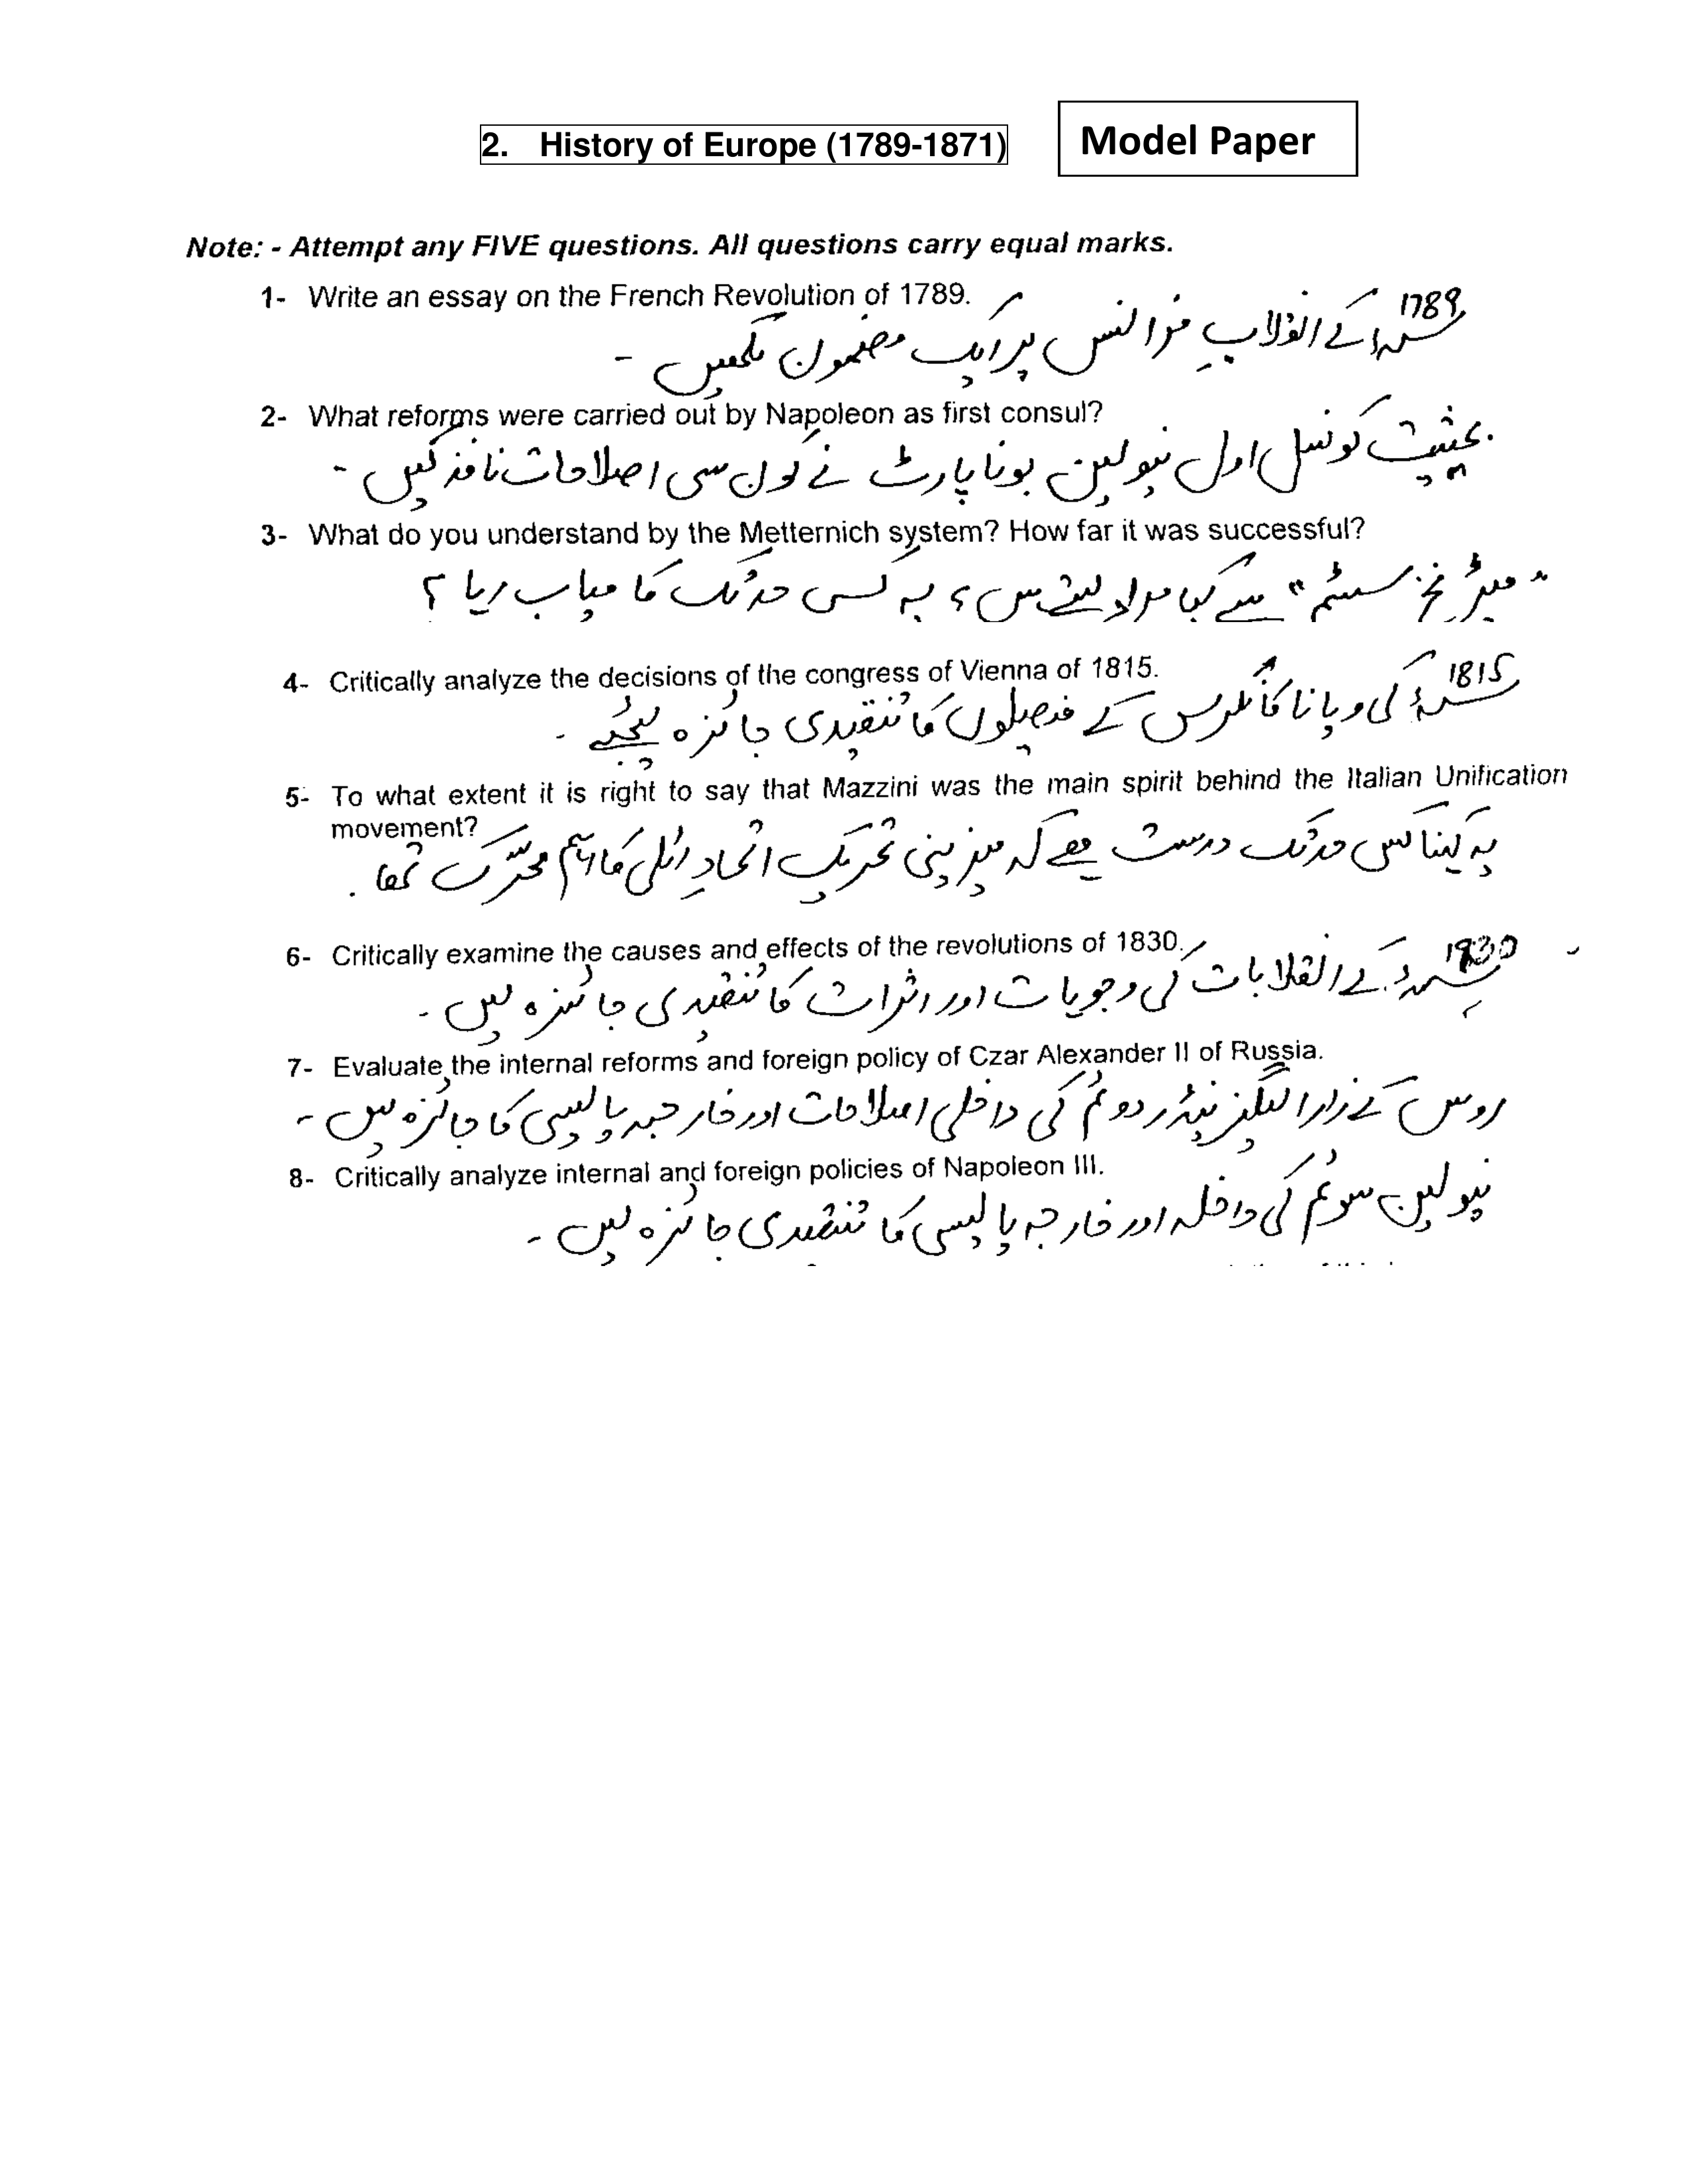 2. History of Europe (1789-1871)
Model Paper
Note: - Attempt any FIVE questions. All questions carry equal marks.
1- Write an essay on the French Revolution of 1789.
1789ء کے انقلابِ فرانس پر ایک مضمون لکھیں -
2- What reforms were carried out by Napoleon as first consul?
بحیثیت کونسل اول نپولین بونا پارٹ نے کون سی اصلاحات نافذ کیں -
3- What do you understand by the Metternich system? How far it was successful?
"میٹرنخ سسٹم" سے کیا مراد لیتے ہیں؟ یہ کسی حد تک کامیاب رہا؟
4- Critically analyze the decisions of the congress of Vienna of 1815.
1815ء کی ویانا کانگرس کے فیصلوں کا تنقیدی جائزہ لیجئے -
5- To what extent it is right to say that Mazzini was the main spirit behind the Italian Unification
movement?
یہ کہنا کس حد تک درست ہے کہ میزینی تحریک اتحادِ اٹلی کا اہم محرّک تھا .
6- Critically examine the causes and effects of the revolutions of 1830.
1930ء کے انقلابات کی وجوہات اور اثرات کا تنقیدی جائزہ لیں -
7- Evaluate the internal reforms and foreign policy of Czar Alexander II of Russia.
روس کے زار الیگزینڈر دوئم کی داخلی اصلاحات اور خارجہ پالیسی کا جائزہ لیں -
8- Critically analyze internal and foreign policies of Napoleon III.
نپولین سوئم کی داخلہ اور خارجہ پالیسی کا تنقیدی جائزہ لیں -